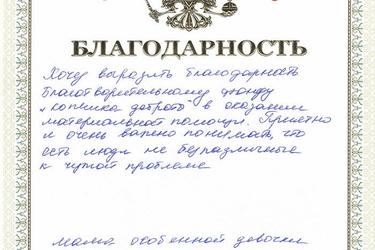 БЛАГОДАРНОСТЬ
Хочу выразить благодарность
Благотворительному фонду
"Копилка добра" в оказании
материальной помощи. Приятно
и очень важно понимать, что
есть люди не безразличные
к чужой проблеме
мама особенной девочки